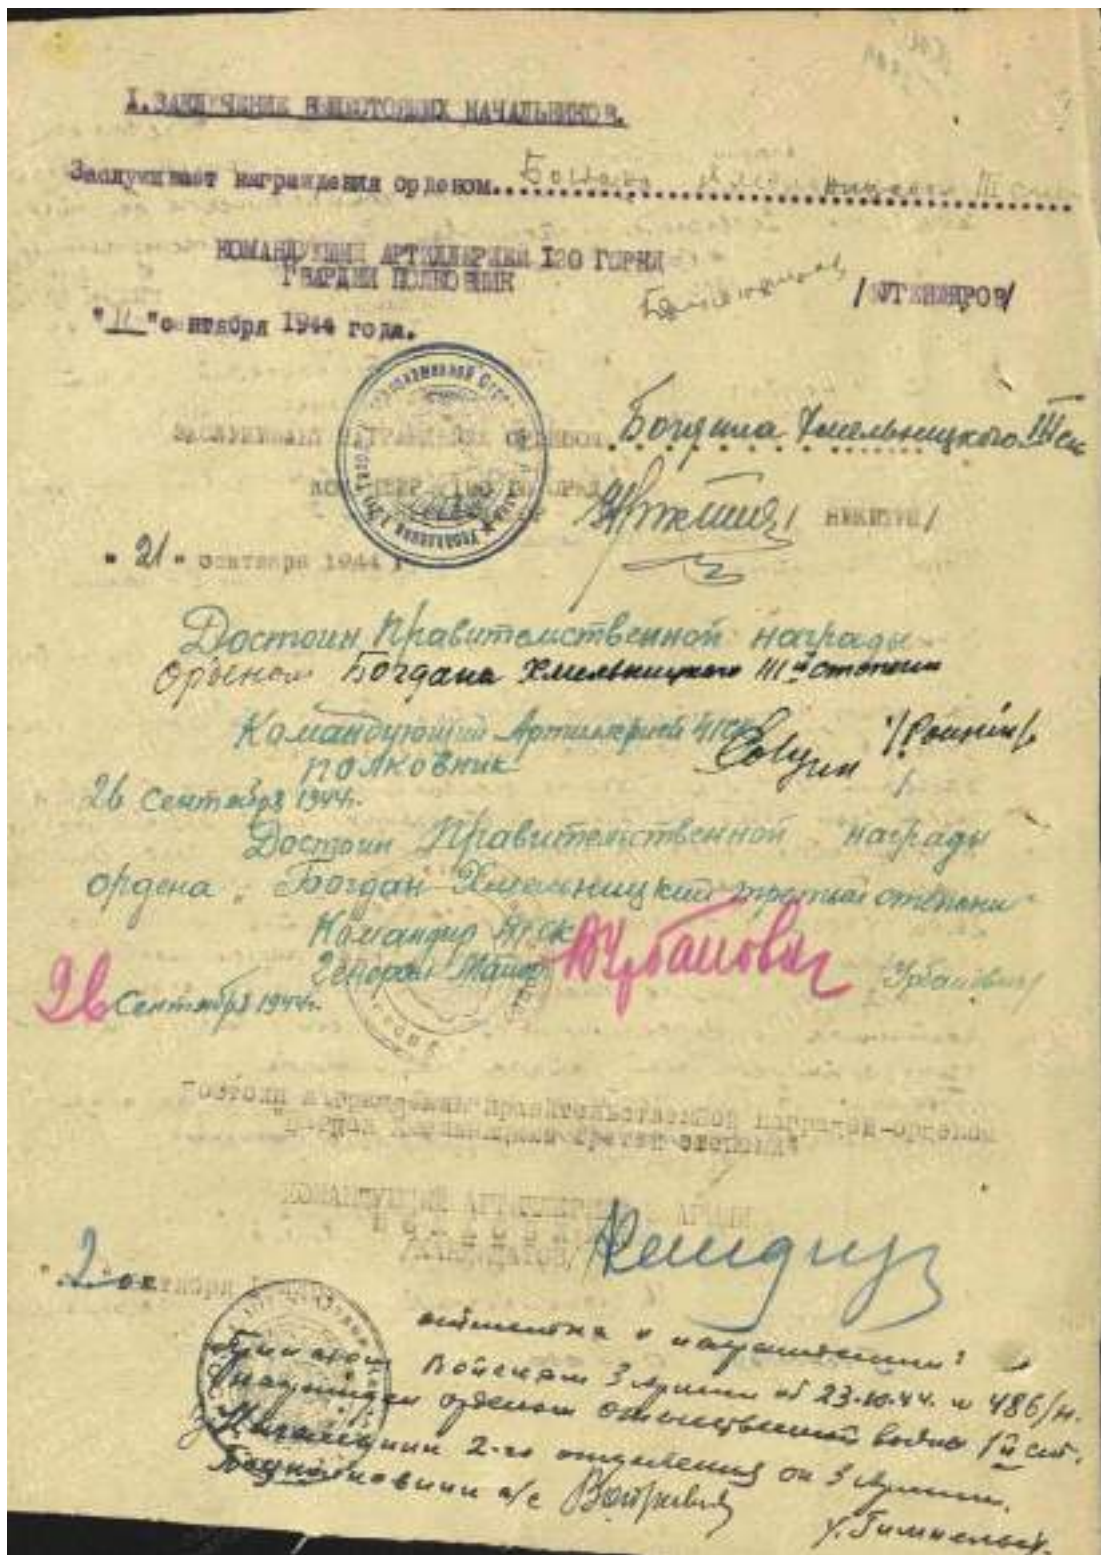 I. ЗАКЛЮЧЕНИЕ ВЫШЕСТОЯЩИХ НАЧАЛЬНИКОВ.
Заслуживает награждения орденом III
КОМАНДУЮЩИЙ АРТИЛЛЕРИЕЙ 120 ГСРКД
ГВАРДИИ ПОЛКОВНИК
"11" сентября 1944 года.
ЗАСЛУЖИВАЕТ НАГРАЖДЕНИЯ ОРДЕНОМ Богдана Хмельницкого III ст
КОМАНДИР
/НИКИТИН/
"21" сентября 1944 г.
Достоин Правительственной награды
орденом Богдана Хмельницкого III й степени
Командующий Артилерией 41 СК
полковник
26 Сентября 1944г.
Достоин Правительственной награды
ордена "Богдан Хмельницкий третьей степени"
Командир 41 СК
Генерал Майор Урбанович /Урбанович/
26 Сентября 1944г.
Достоин награждения правительственной наградой-орденом
Богдан Хмельницкий третей степени"
КОМАНДУЮЩИЙ АРТИЛЛЕРИЕЙ 3 АРМИИ
"2" октября
отметка о награждении:
Приказом Войскам 3 Армии от 23.10.44. № 486/н.
награжден орденом отечественной войны 1й ст.
2-го отделения ок 3 Армии.